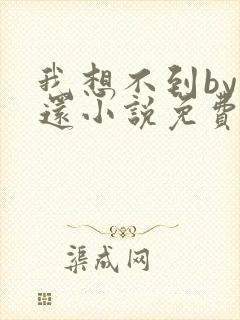 我想不到by
还小說免費
渠成网